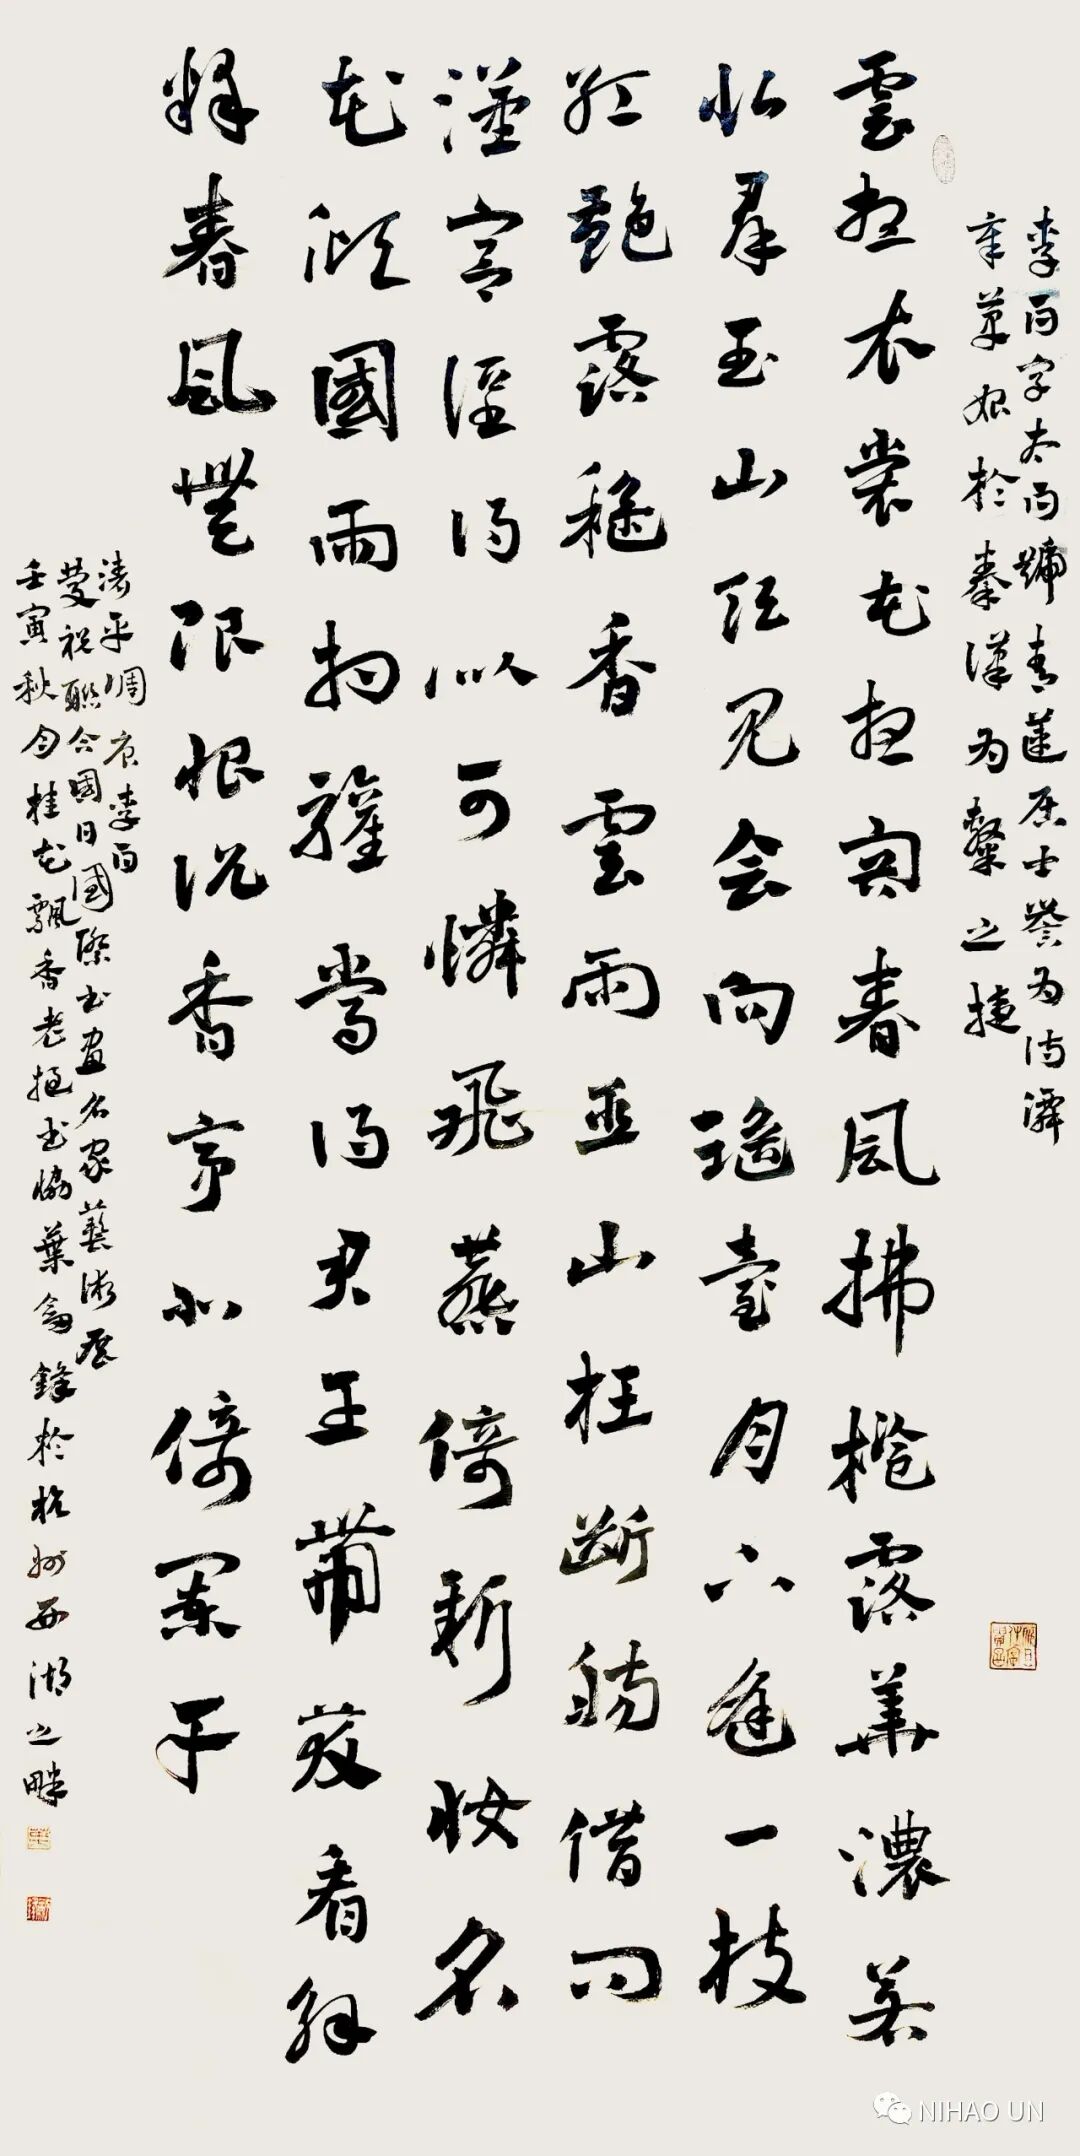 李白字太白號青蓮居士譽为诗
章草始於秦漢为隸之捷
雲想衣裳花想容春風拂檻露華濃若
非羣玉山頭见会向瑤臺月下逢一枝
红艷露穠香雲雨巫山枉断肠借问
漢宫谁得似可憐飛燕倚新妝名
花倾國两相歡常得君王帶笑看解
释春風無限恨沉香亭北倚闌干
清平调 唐李白
慶祝聯合國日國際书画名家藝術展
壬寅秋月桂花飄香 葉 鋒於杭州西湖之畔
NIHAO UN